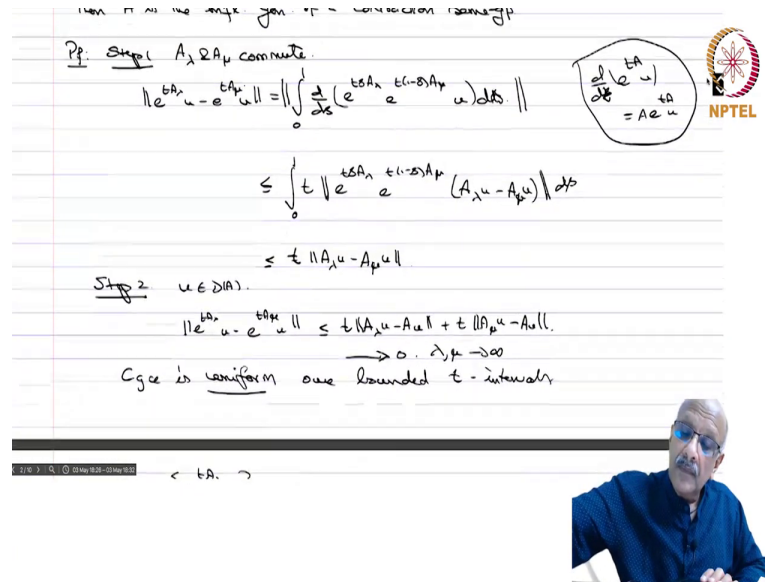 Then A is the inf. gen. of a contraction semi-gp
Pf: Step 1 A_λ & A_μ commute.
‖e^{tA_λ}u - e^{tA_μ}u‖ = ‖∫_0^1 d/ds (e^{tsA_λ} e^{t(1-s)A_μ} u) ds‖
d/dt (e^{tA} u)
= A e^{tA} u
NPTEL
≤ ∫_0^1 t ‖e^{tsA_λ} e^{t(1-s)A_μ} (A_λu - A_μu)‖ ds
≤ t ‖A_λu - A_μu‖
Step 2 u ∈ D(A).
‖e^{tA_λ}u - e^{tA_μ}u‖ ≤ t‖A_λu - Au‖ + t‖A_μu - Au‖.
⟶ 0. λ, μ → ∞
Cgce is uniform over bounded t - intervals
2/10 03 May 18:26 - 03 May 18:32